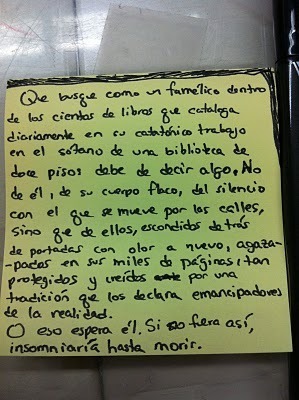 Que busque como un famélico dentro
de los cientos de libros que cataloga
diariamente en su catatónico trabajo
en el sótano de una biblioteca de
doce pisos debe de decir algo. No
de él, de su cuerpo flaco, del silencio
con el que se mueve por las calles,
sino que de ellos, escondidos detrás
de portadas con olor a nuevo, agaza-
-pados en sus miles de páginas, tan
protegidos y creídos por una
tradición que los declara emancipadores
de la realidad.
O eso espera él. Si no fuera así,
insomniaría hasta morir.